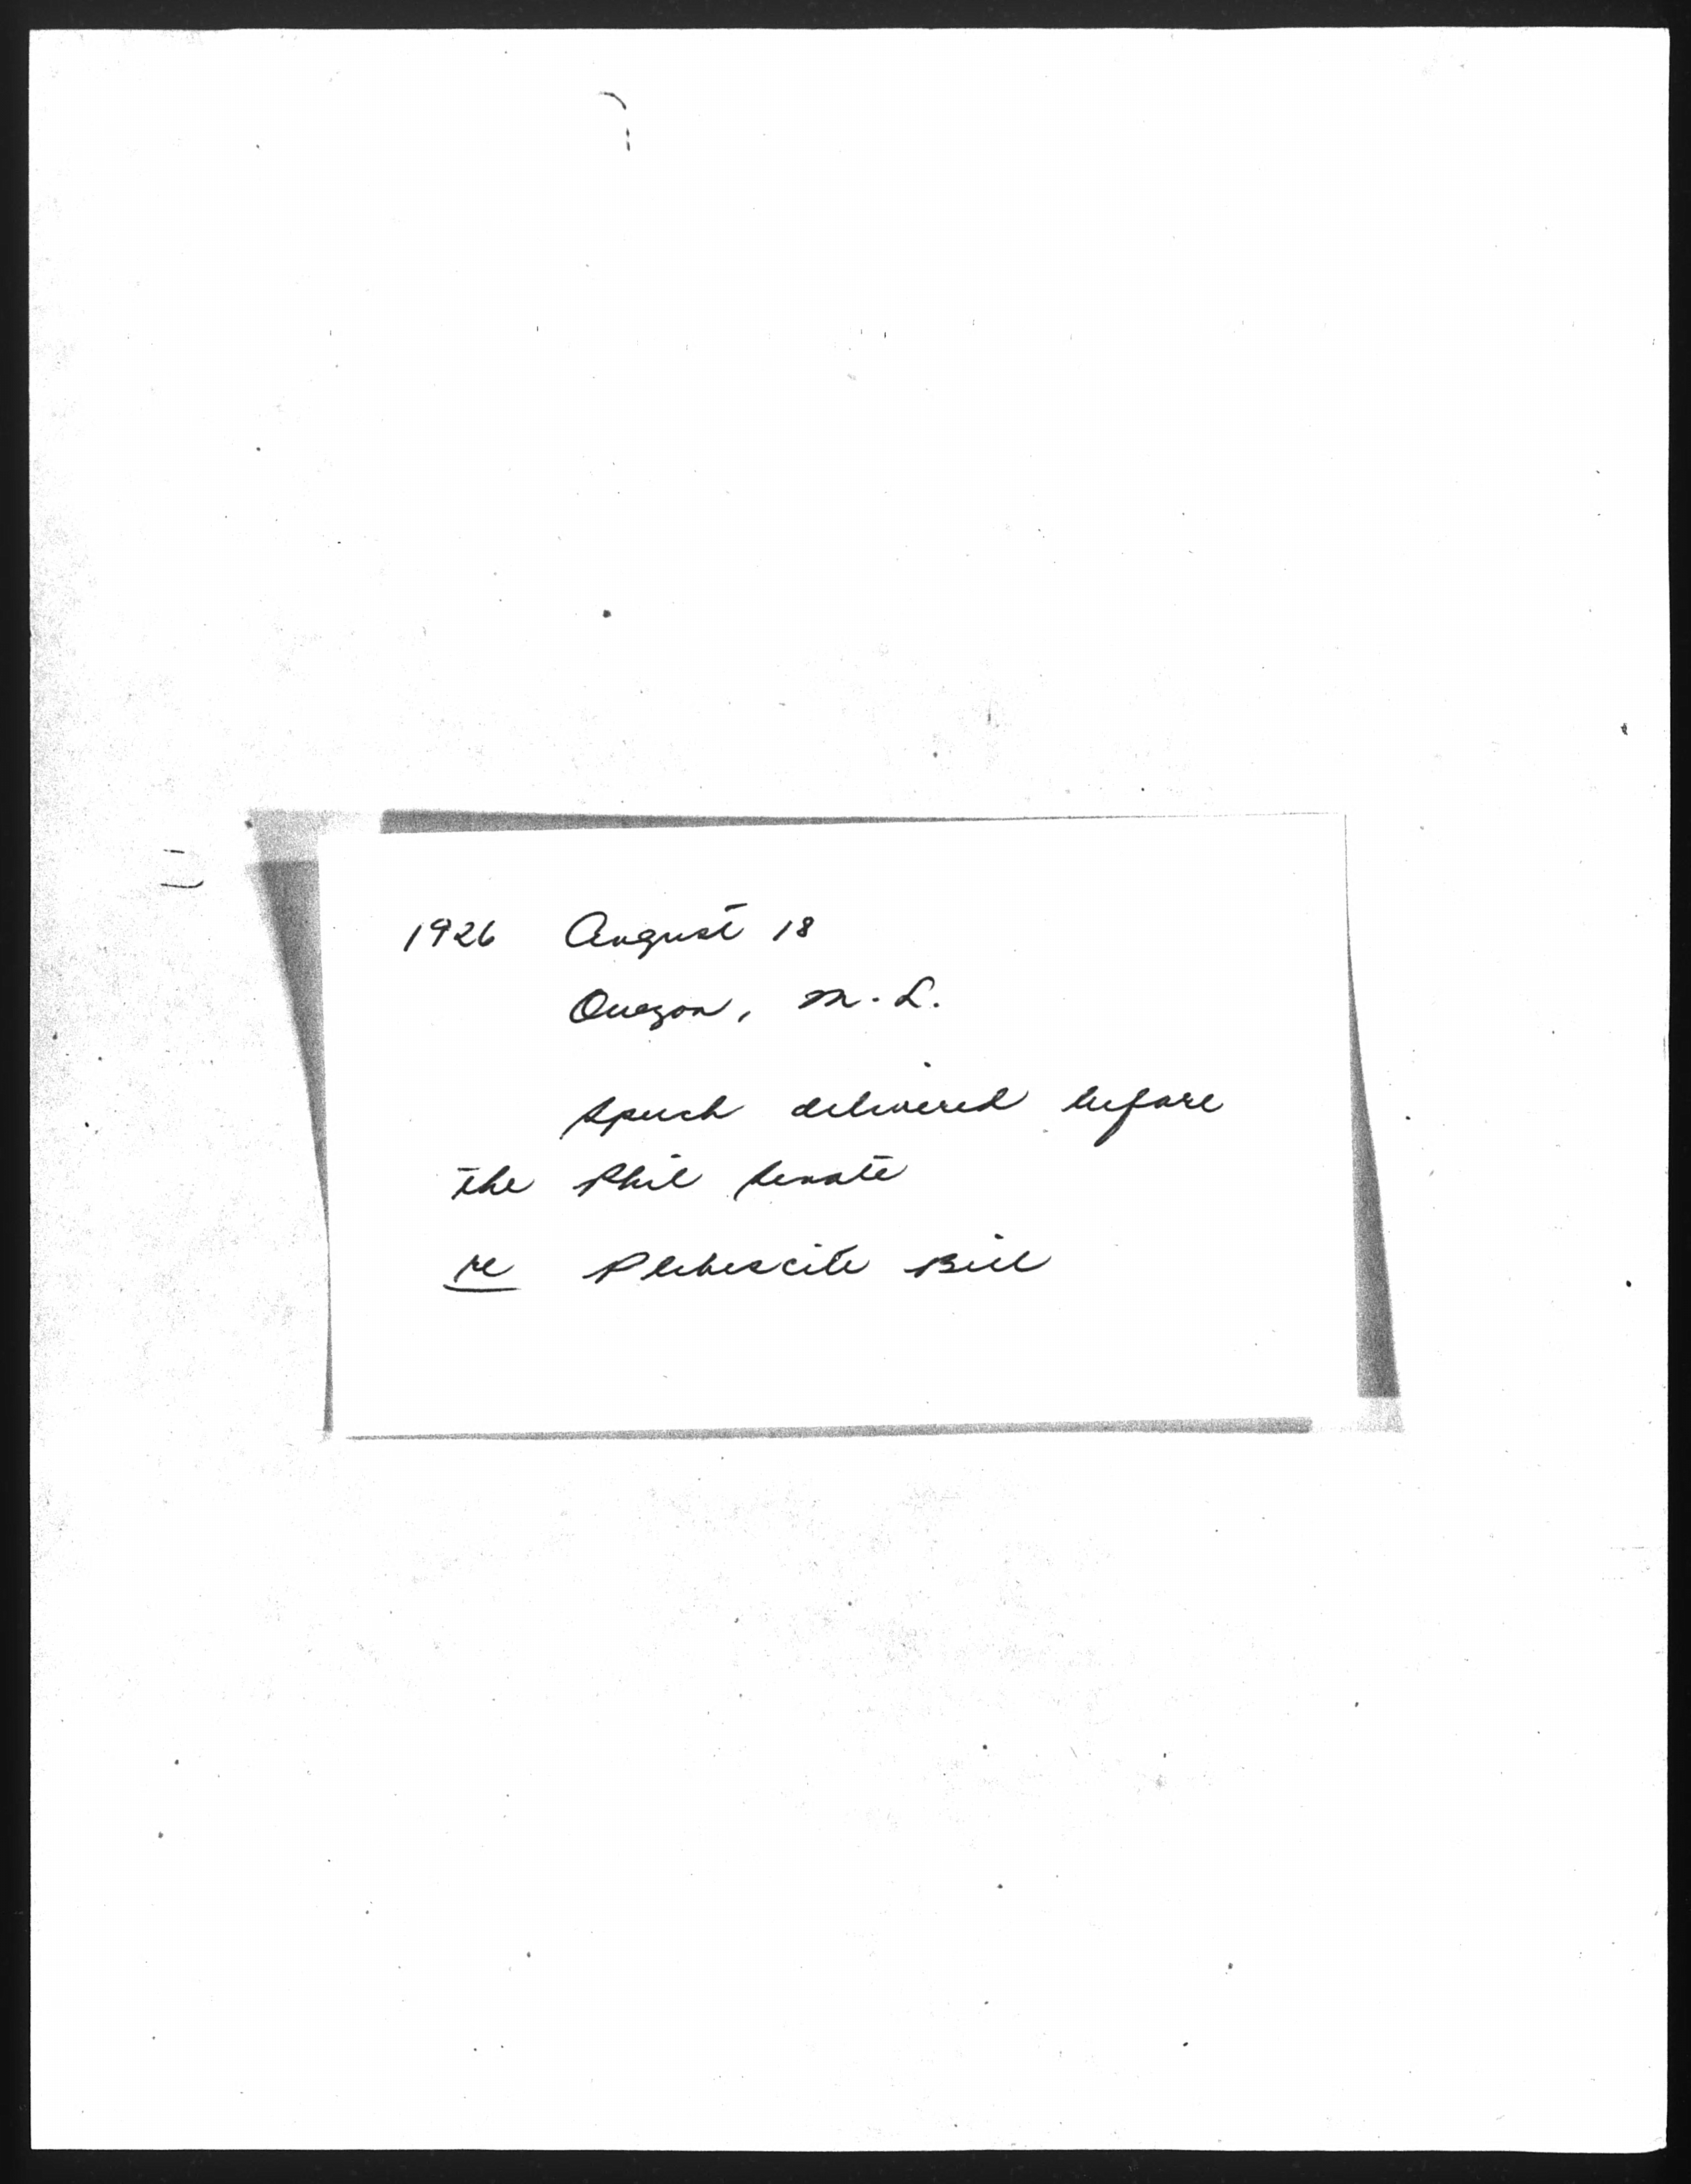 1926 August 18
Quezon, M. L.
Speech delivered before
the Phil Senate
re Plebescite Bill